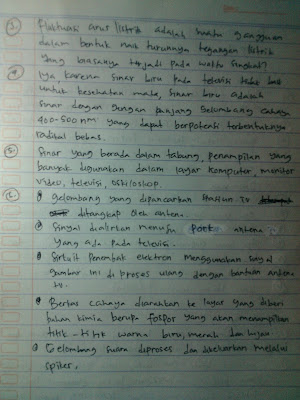 3. Fluktuasi arus listrik adalah suatu gangguan
dalam bentuk naik turunnya tegangan listrik
yang biasanya terjadi pada waktu singkat?
4. Iya karena sinar biru pada televisi tidak baik
untuk kesehatan mata, sinar biru adalah
sinar dengan panjang gelombang cahaya
400-500 nm yang dapat berpotensi terbentuknya
radikal bebas.
5. Sinar yang berada dalam tabung, penampilan yang
banyak digunakan dalam layar komputer, monitor
video, televisi, osiloskop.
gelombang yang dipancarkan stasiun TV
ditangkap oleh antena.
Sinyal dialirkan menuju port antena
yang ada pada televisi.
Sirkuit penembak elektron menggunakan sinyal
gambar ini diproses ulang dengan bantuan antena
tv.
Berkas cahaya diarahkan ke layar yang diberi
bahan kimia berupa fospor yang akan menampilkan
titik-titik warna biru, merah dan hijau.
Gelombang suara diproses dan dikeluarkan melalui
spiker.